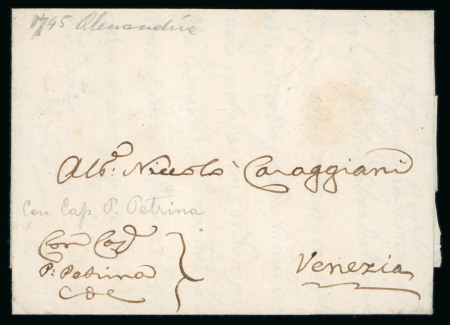 1745 Alexandrie
Al Sr: Niccolò Caraggiani
Con Cap. P. Petrina
Con Cap
P: Petrina
C D C
Venezia